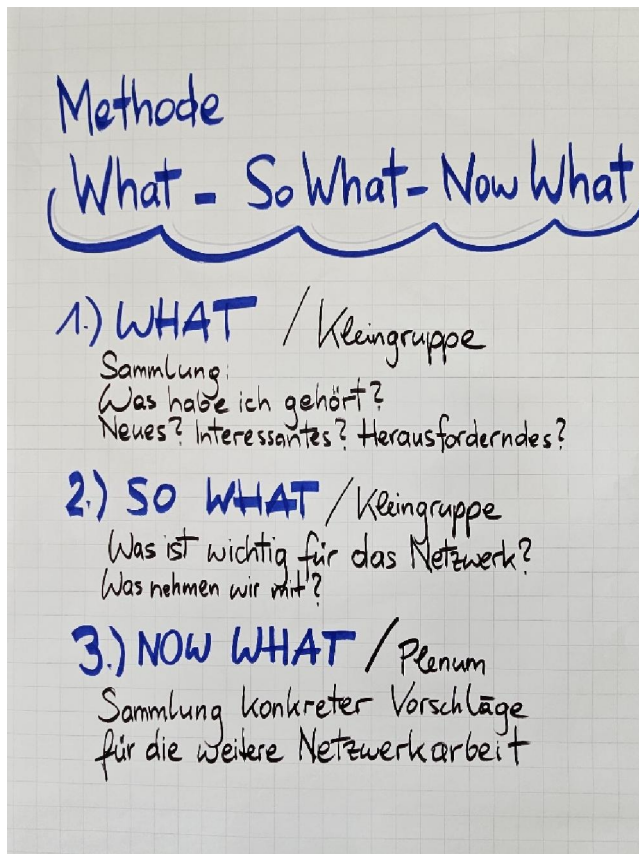 Methode
What - So What - Now What
1.) WHAT / Kleingruppe
Sammlung:
Was habe ich gehört?
Neues? Interessantes? Herausforderndes?
2.) SO WHAT / Kleingruppe
Was ist wichtig für das Netzwerk?
Was nehmen wir mit?
3.) NOW WHAT / Plenum
Sammlung konkreter Vorschläge
für die weitere Netzwerkarbeit